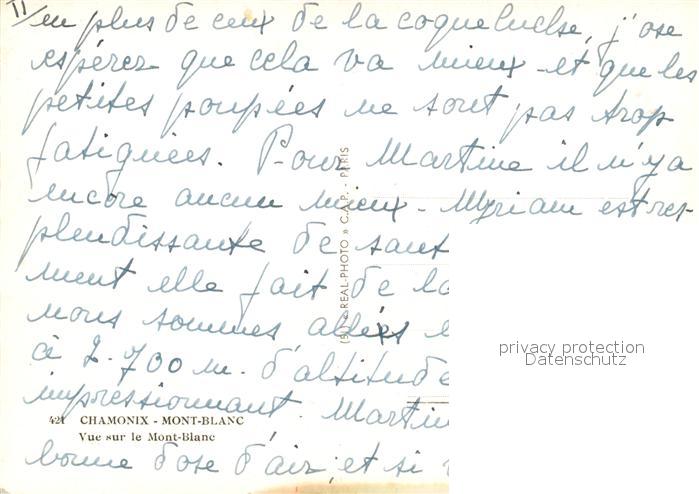 II/ en plus de ceux de la coqueluche, j'ose
espérer que cela va mieux et que les
petites poupées ne sont pas trop
fatiguées. Pour Martine il n'y a
encore aucun mieux - Myriam est res-
plendissante de sant
ment elle fait de la
nous sommes allées
à 2.700 m. d'altitude
impressionnant. Martin
bonne dose d'air, et si
(51) « REAL-PHOTO » C.A.P. - PARIS
421 CHAMONIX - MONT-BLANC
Vue sur le Mont-Blanc
privacy protection
Datenschutz